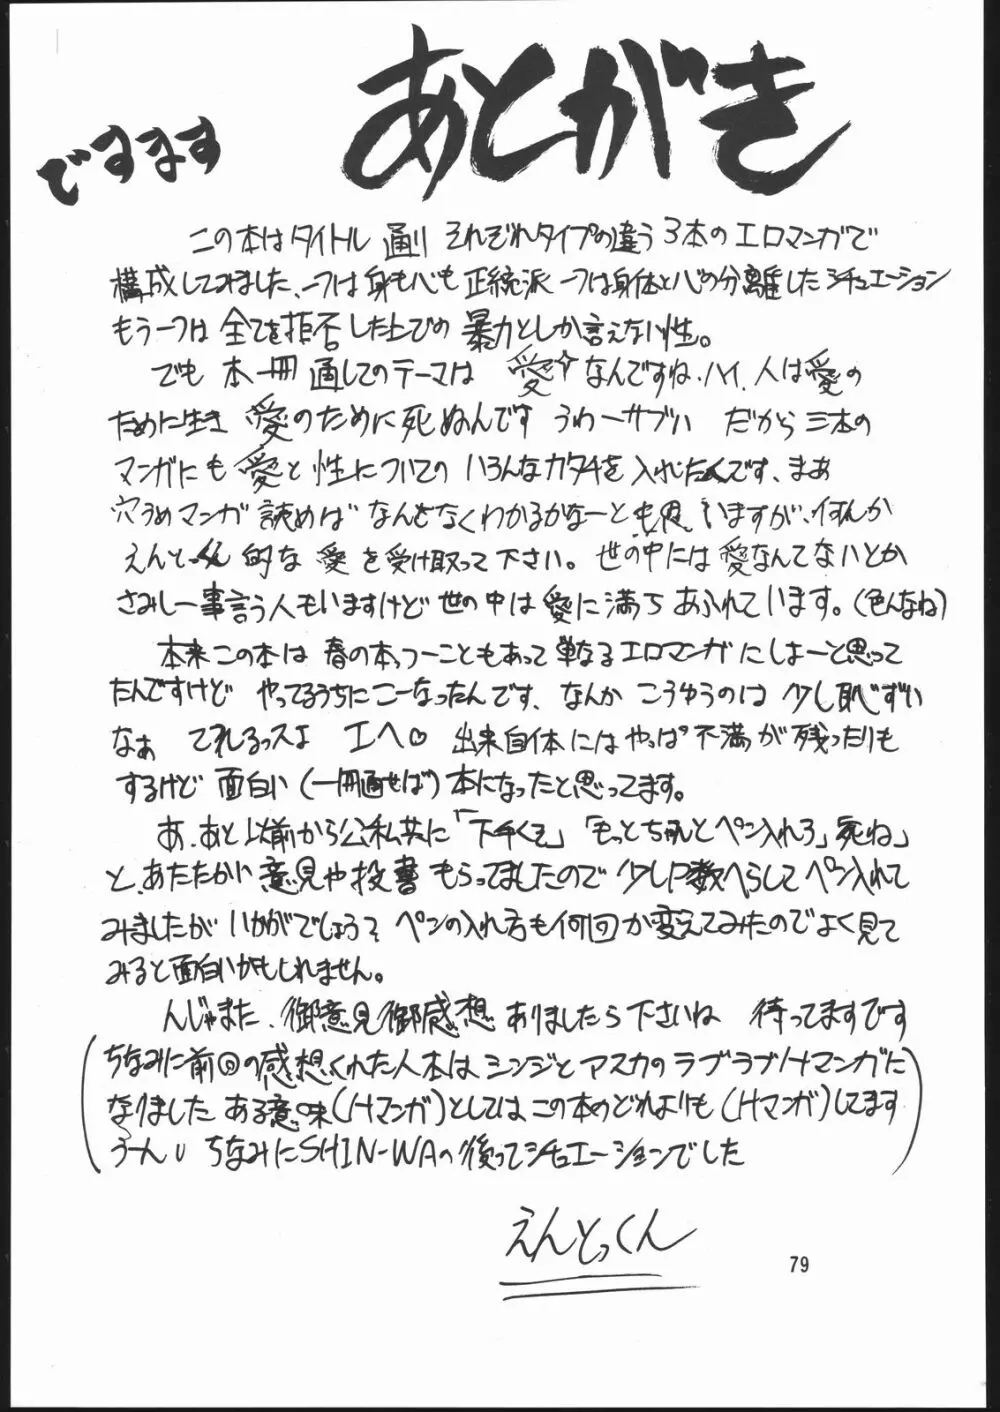 あとがき
でまます
この本はタイトル通り それぞれタイプの違う3本のエロマンガで
構成してみました、一つは身も心も正統派 一つは身体と心の分離したシチュエーション
もう一つは全てを拒否した上での暴力としか言えない性。
でも本一冊通してのテーマは 愛 なんですね、ハイ、人は愛の
ために生き愛のために死ぬんです うわーサブい だから三本の
マンガにも愛と性についてのいろんなカタチを入れたんです、まあ
穴うめマンガ読めばなんとなくわかるかなーとも思いますが、何んか
えんとっくん的な愛を受け取って下さい。世の中には愛なんてないとか
さみしー事言う人もいますけど世の中は愛に満ちあふれています。(色んなね)
本来この本は春の本っつーこともあって単なるエロマンガにしよーと思って
たんですけど やってるうちにこーなったんです、なんかこうゆうのは少し恥ずい
なぁ てれるっスよ エへ♡ 出来自体にはやっぱ不満が残ったりも
するけど面白い(一冊通せば)本になったと思ってます。
あ、あと以前から公私共に「下手くそ」「もっとちゃんとペン入れろ」死ね」
と、あたたかい意見や投書もらってましたので少しP数へらしてペン入れて
みましたがいかがでしょう? ペンの入れ方も何回か変えてみたのでよく見て
みると面白いかもしれません。
んじゃまた、御意見御感想ありましたら下さいね 待ってますです
(ちなみに前回の感想くれた人本はシンジとアスカのラブラブHマンガに
なりました ある意味(Hマンガ)としてはこの本のどれよりも(Hマンガ)してます
うーん ちなみにSHIN-WAの後ってシチュエーションでした)
えんとっくん
79